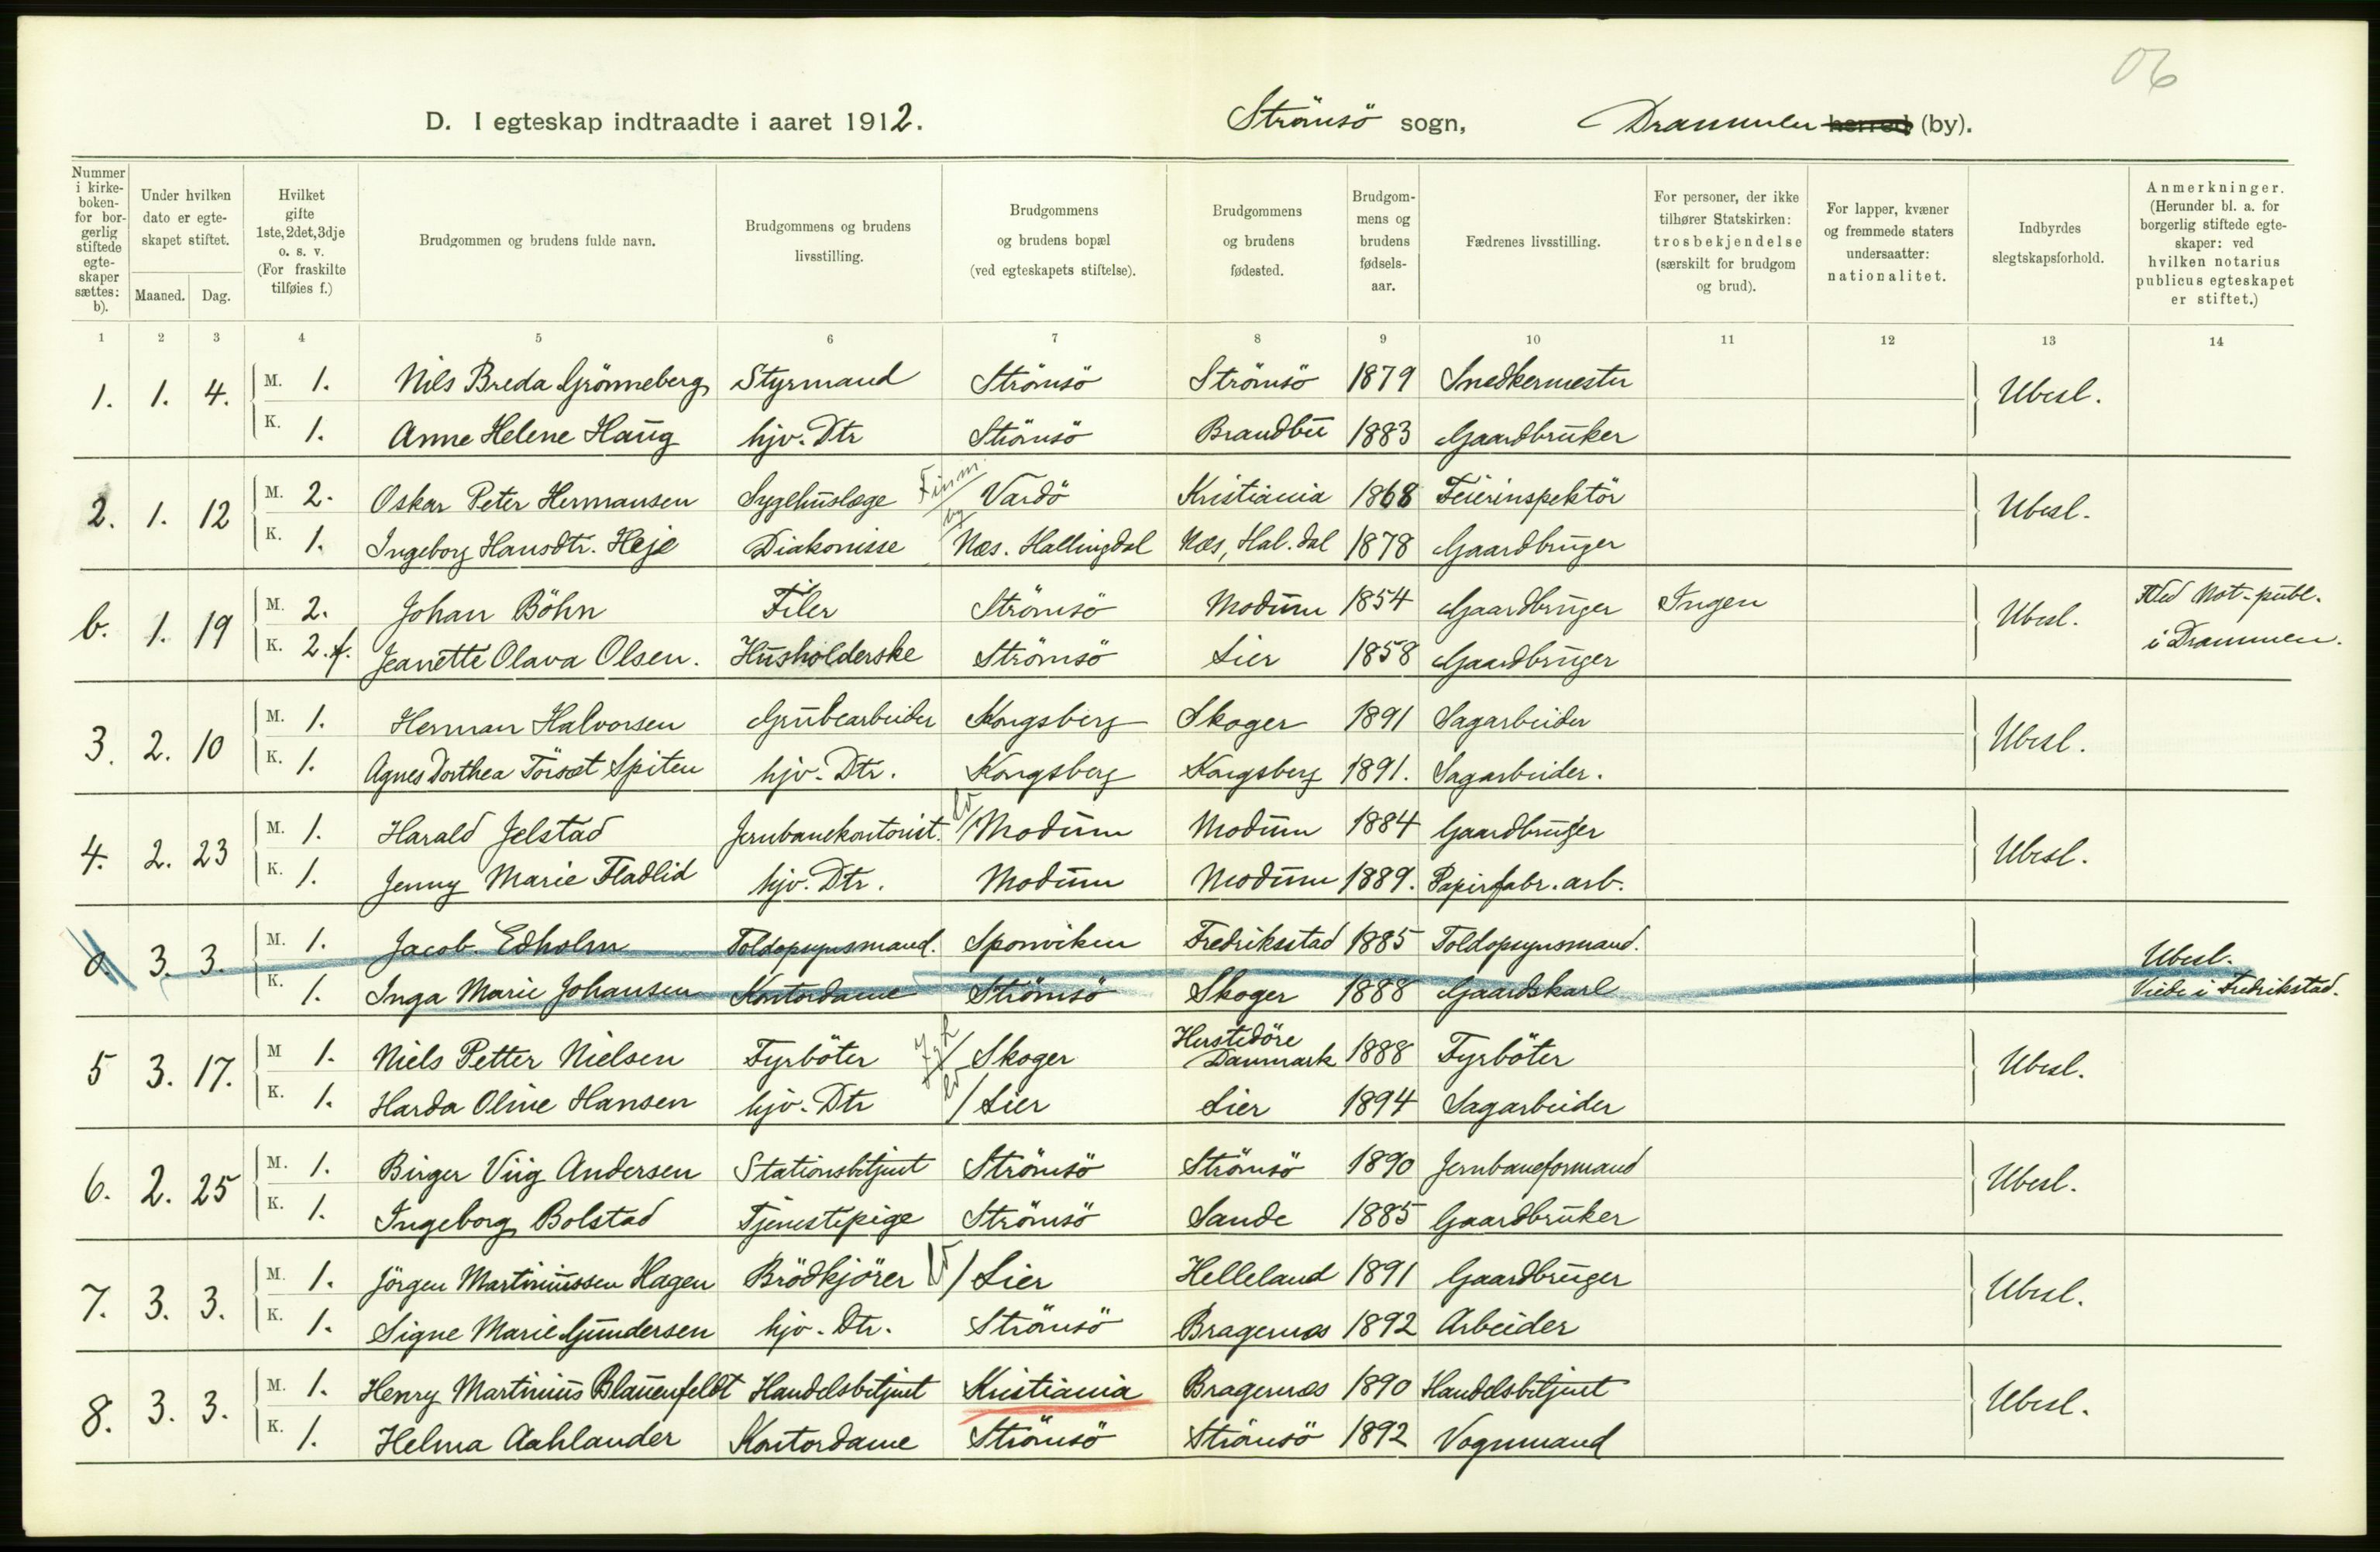 06
D. I egteskap indtraadte i aaret 1912. Strömsö sogn, Drammen herred (by).
Nummer i kirkeboken- for borgerlig stiftede egteskaper sættes: b). | Under hvilken dato er egteskapet stiftet. Maaned. Dag. | Hvilket gifte 1ste, 2det, 3dje o. s. v. (For fraskilte tilføies f.) | Brudgommen og brudens fulde navn. | Brudgommens og brudens livsstilling. | Brudgommens og brudens bopæl (ved egteskapets stiftelse). | Brudgommens og brudens fødested. | Brudgommens og brudens fødselsaar. | Fædrenes livsstilling. | For personer, der ikke tilhører Statskirken: trosbekjendelse (særskilt for brudgom og brud). | For lapper, kvæner og fremmede staters undersaatter: nationalitet. | Indbyrdes slegtskapsforhold. | Anmerkninger. (Herunder bl. a. for borgerlig stiftede egteskaper: ved hvilken notarius publicus egteskapet er stiftet.)
1 2 3 4 5 6 7 8 9 10 11 12 13 14
1. 1. 4. M. 1. Nils Breda Grönneberg Styrmand Strömsö Strömsö 1879 Snedkermester Ubesl.
K. 1. Anne Helene Haug hjv. Dtr Strömsö Brandbu 1883 Gaardbruker
2. 1. 12 M. 2. Oskar Peter Hermansen Sygehuslæge Finm. Vardö Kristiania 1868 Feierinspektör Ubesl.
K. 1. Ingeborg Hansdtr. Heje Diakonisse by Næs. Hallingdal Næs, Hal.dal 1878 Gaardbruger
b. 1. 19 M. 2. Johan Böhn Filer Strömsö Modum 1854 Gaardbruger Ingen Ubesl. Ved Not-publ.
K. 2.f. Jeanette Olava Olsen. Husholderske Strömsö Lier 1858 Gaardbruger i Drammen.
3. 2. 10 M. 1. Herman Halvorsen Grubearbeider Kongsberg Skoger 1891 Sagarbeider Ubesl.
K. 1. Agnes Dorthea Törsæt Spiten hjv. Dtr. Kongsberg Kongsberg 1891. Sagarbeider.
4. 2. 23 M. 1. Harald Jelstad Jernbanekontorist. / Modum Modum 1884 Gaardbruger Ubesl.
K. 1. Jenny Marie Fladlid hjv. Dtr. Modum Modum 1889. Papirfabr. arb.
3. 3. M. 1. Jacob Edholm Toldopsynsmand. Sponviken Fredriksstad 1885 Toldopsynsmand. Ubesl.
K. 1. Inga Marie Johansen Kontordame Strömsö Skoger 1888 Gaardskarl Viede i Fredrikstad.
5 3. 17. M 1. Niels Petter Nielsen Fyrböter / Skoger Hustedöre Danmark 1888 Fyrböter Ubesl.
K. 1. Harda Oline Hansen hjv. Dtr / Lier Lier 1894 Sagarbeider
6. 2. 25 M. 1. Birger Viig Andersen Stationsbetjent Strömsö Strömsö 1890 Jernbaneformand Ubesl.
K. 1. Ingeborg Bolstad Tjenestepige Strömsö Sande 1885 Gaardbruker
7. 3. 3. M. 1. Jörgen Martiniussen Hagen Brödkjörer / Lier Helleland 1891 Gaardbruger Ubesl.
K. 1. Signe Marie Gundersen hjv. Dtr. Strömsö Bragernæs 1892 Arbeider
8. 3. 3. M. 1. Henry Martinius Blauenfeldt Handelsbetjent Kristiania Bragernæs 1890 Handelsbetjent Ubesl.
K. 1. Helma Aahlander Kontordame Strömsö Strömsö 1892 Vognmand